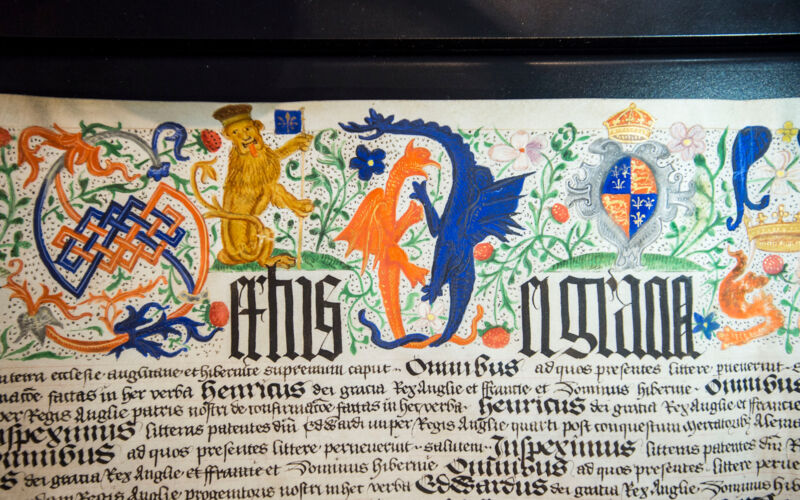 ertus ei gracia
in terra ecclesie anglicane et hibernice supremum caput Omnibus ad quos presentes littere pervenerint
factas in hec verba henricus dei gracia Rex Anglie et ffrancie et Dominus hibernie Omnibus
nuper Regis Anglie patris nostri de confirmacõe factas in hec verba henricus dei gracia Rex Anglie et ffrancie
Inspeximus litteras patentes dm̃ Edwardi nuper Regis Anglie quarti post conquestum
Omnibus ad quos presentes littere pervenerint salutem Inspeximus litteras patentes dm̃
dei gracia Rex Anglie et ffrancie et Dominus hibernie Omnibus ad quos presentes littere
Regis Anglie progenitoris nostri in hec verba Edwardus dei gracia Rex Anglie Dominus